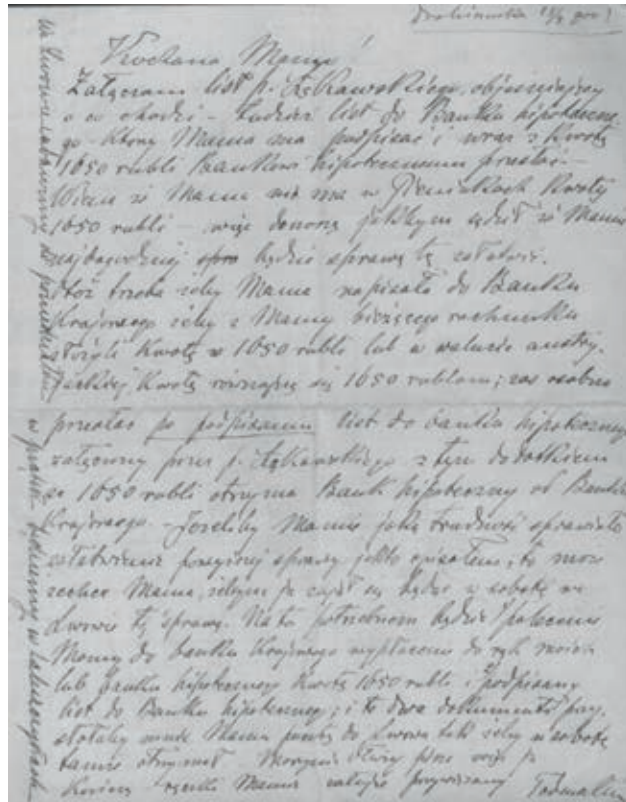 Kochana Mamo!
Załączam list p. Łękawskiego, objaśniający
o co chodzi – tudzież list do Banku hipoteczne
go – który Mama ma podpisać i wraz z kwotą
1650 rubli Bankowi hipotecznemu przesłać. –
Wiem że Mama nie ma w Pieniakach kwoty
1650 rubli – więc donoszę jakbym sądził że Mamie
najwygodniej będzie sprawę tę załatwić.
Otóż trzeba żeby Mama napisała do Banku
Krajowego żeby z Mamy bieżącego rachunku
złożyli kwotę w 1650 rubli lub w walucie austry-
jackiej kwotę równającą się 1650 rublom; zaś osobno
przesłać po podpisaniu list do banku hipotecznego
załączony przez p. Łękawskiego z tym dodatkiem
że 1650 rubli otrzyma Bank hipoteczny od Banku
Krajowego. – Jeżeliby Mamie jaką trudność sprawiało
załatwienie powyższej sprawy jak to opisałem, to może
zechce Mama żebym ja zajął się będąc w sobotę we
Lwowie tą sprawą. Na to potrzebnem będzie polecenie
Mamy do banku Krajowego wypłacenia do rąk moich
lub banku hipotecznego kwotę 1650 rubli i podpisany
list do Banku hipotecznego; i te dwa dokumenta
Mama do Lwowa tak żeby w sobotę
tamże otrzymał.
rączki Mamie całuję przywiązany
we Lwowie zabawimy do poniedziałku
w piątek będziemy w